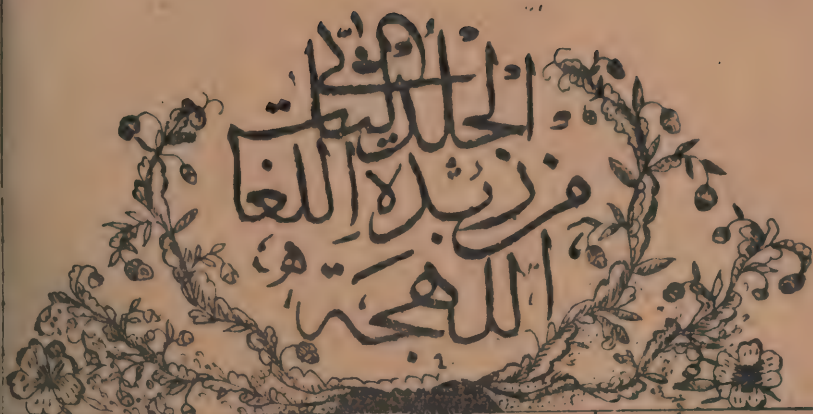 الجلد الثانى
من زبده اللغات
اللهجة